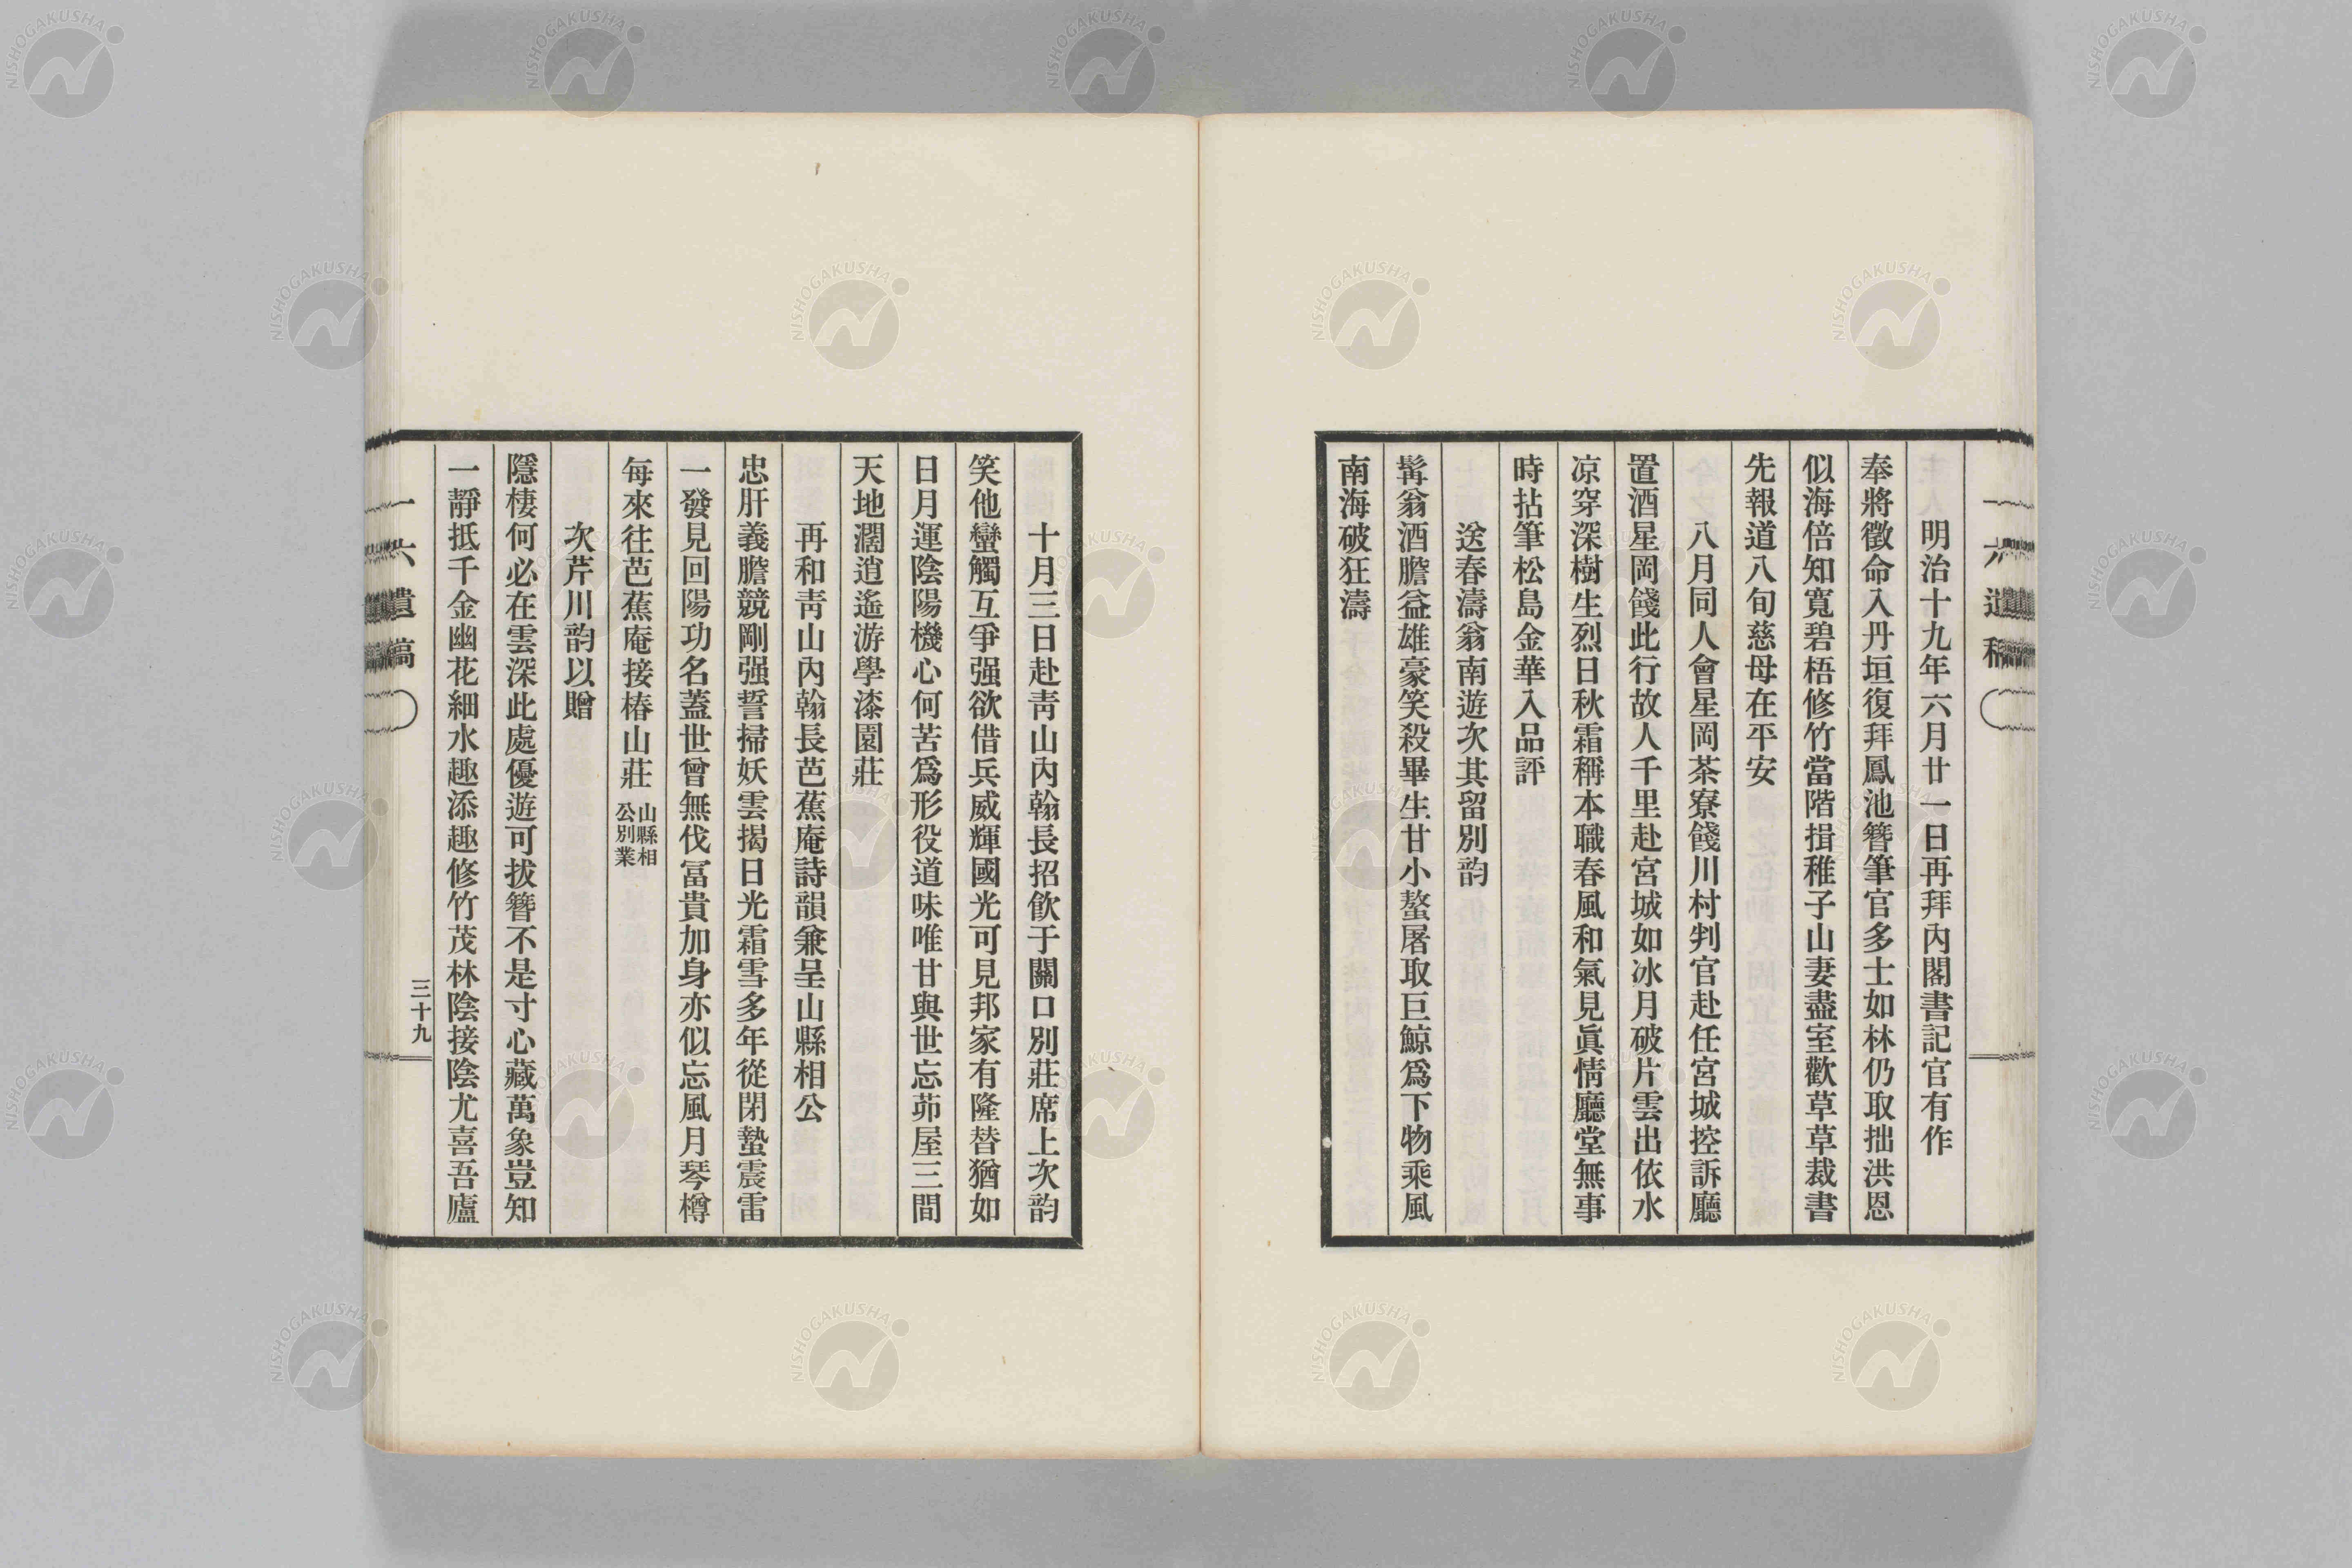 一六遺稿
明治十九年六月廿一日再拜內閣書記官有作
奉將徵命入丹垣復拜鳳池簪筆官多士如林仍取拙洪恩
似海倍知寬碧梧修竹當階揖稚子山妻盡室歡草草裁書
先報道八旬慈母在平安
八月同人會星岡茶寮餞川村判官赴任宮城控訴廳
置酒星岡餞此行故人千里赴宮城如冰月破片雲出依水
凉穿深樹生烈日秋霜稱本職春風和氣見眞情廳堂無事
時拈筆松島金華入品評
送春濤翁南遊次其留別韵
髯翁酒膽益雄豪笑殺畢生甘小螯屠取巨鯨爲下物乘風
南海破狂濤
十月三日赴靑山內翰長招飮于關口別莊席上次韵
笑他蠻觸互爭强欲借兵威輝國光可見邦家有隆替猶如
日月運陰陽機心何苦爲形役道味唯甘與世忘茆屋三間
天地濶逍遙游學漆園莊
再和靑山內翰長芭蕉庵詩韻兼呈山縣相公
忠肝義膽競剛强誓掃妖雲揭日光霜雪多年從閉蟄震雷
一發見回陽功名蓋世曾無伐冨貴加身亦似忘風月琴樽
每來往芭蕉庵接椿山莊 山縣相公別業
次芹川韵以贈
隱棲何必在雲深此處優遊可拔簪不是寸心藏萬象豈知
一靜抵千金幽花細水趣添趣修竹茂林陰接陰尤喜吾廬
一六遺稿
三十九
NISHOGAKUSHA